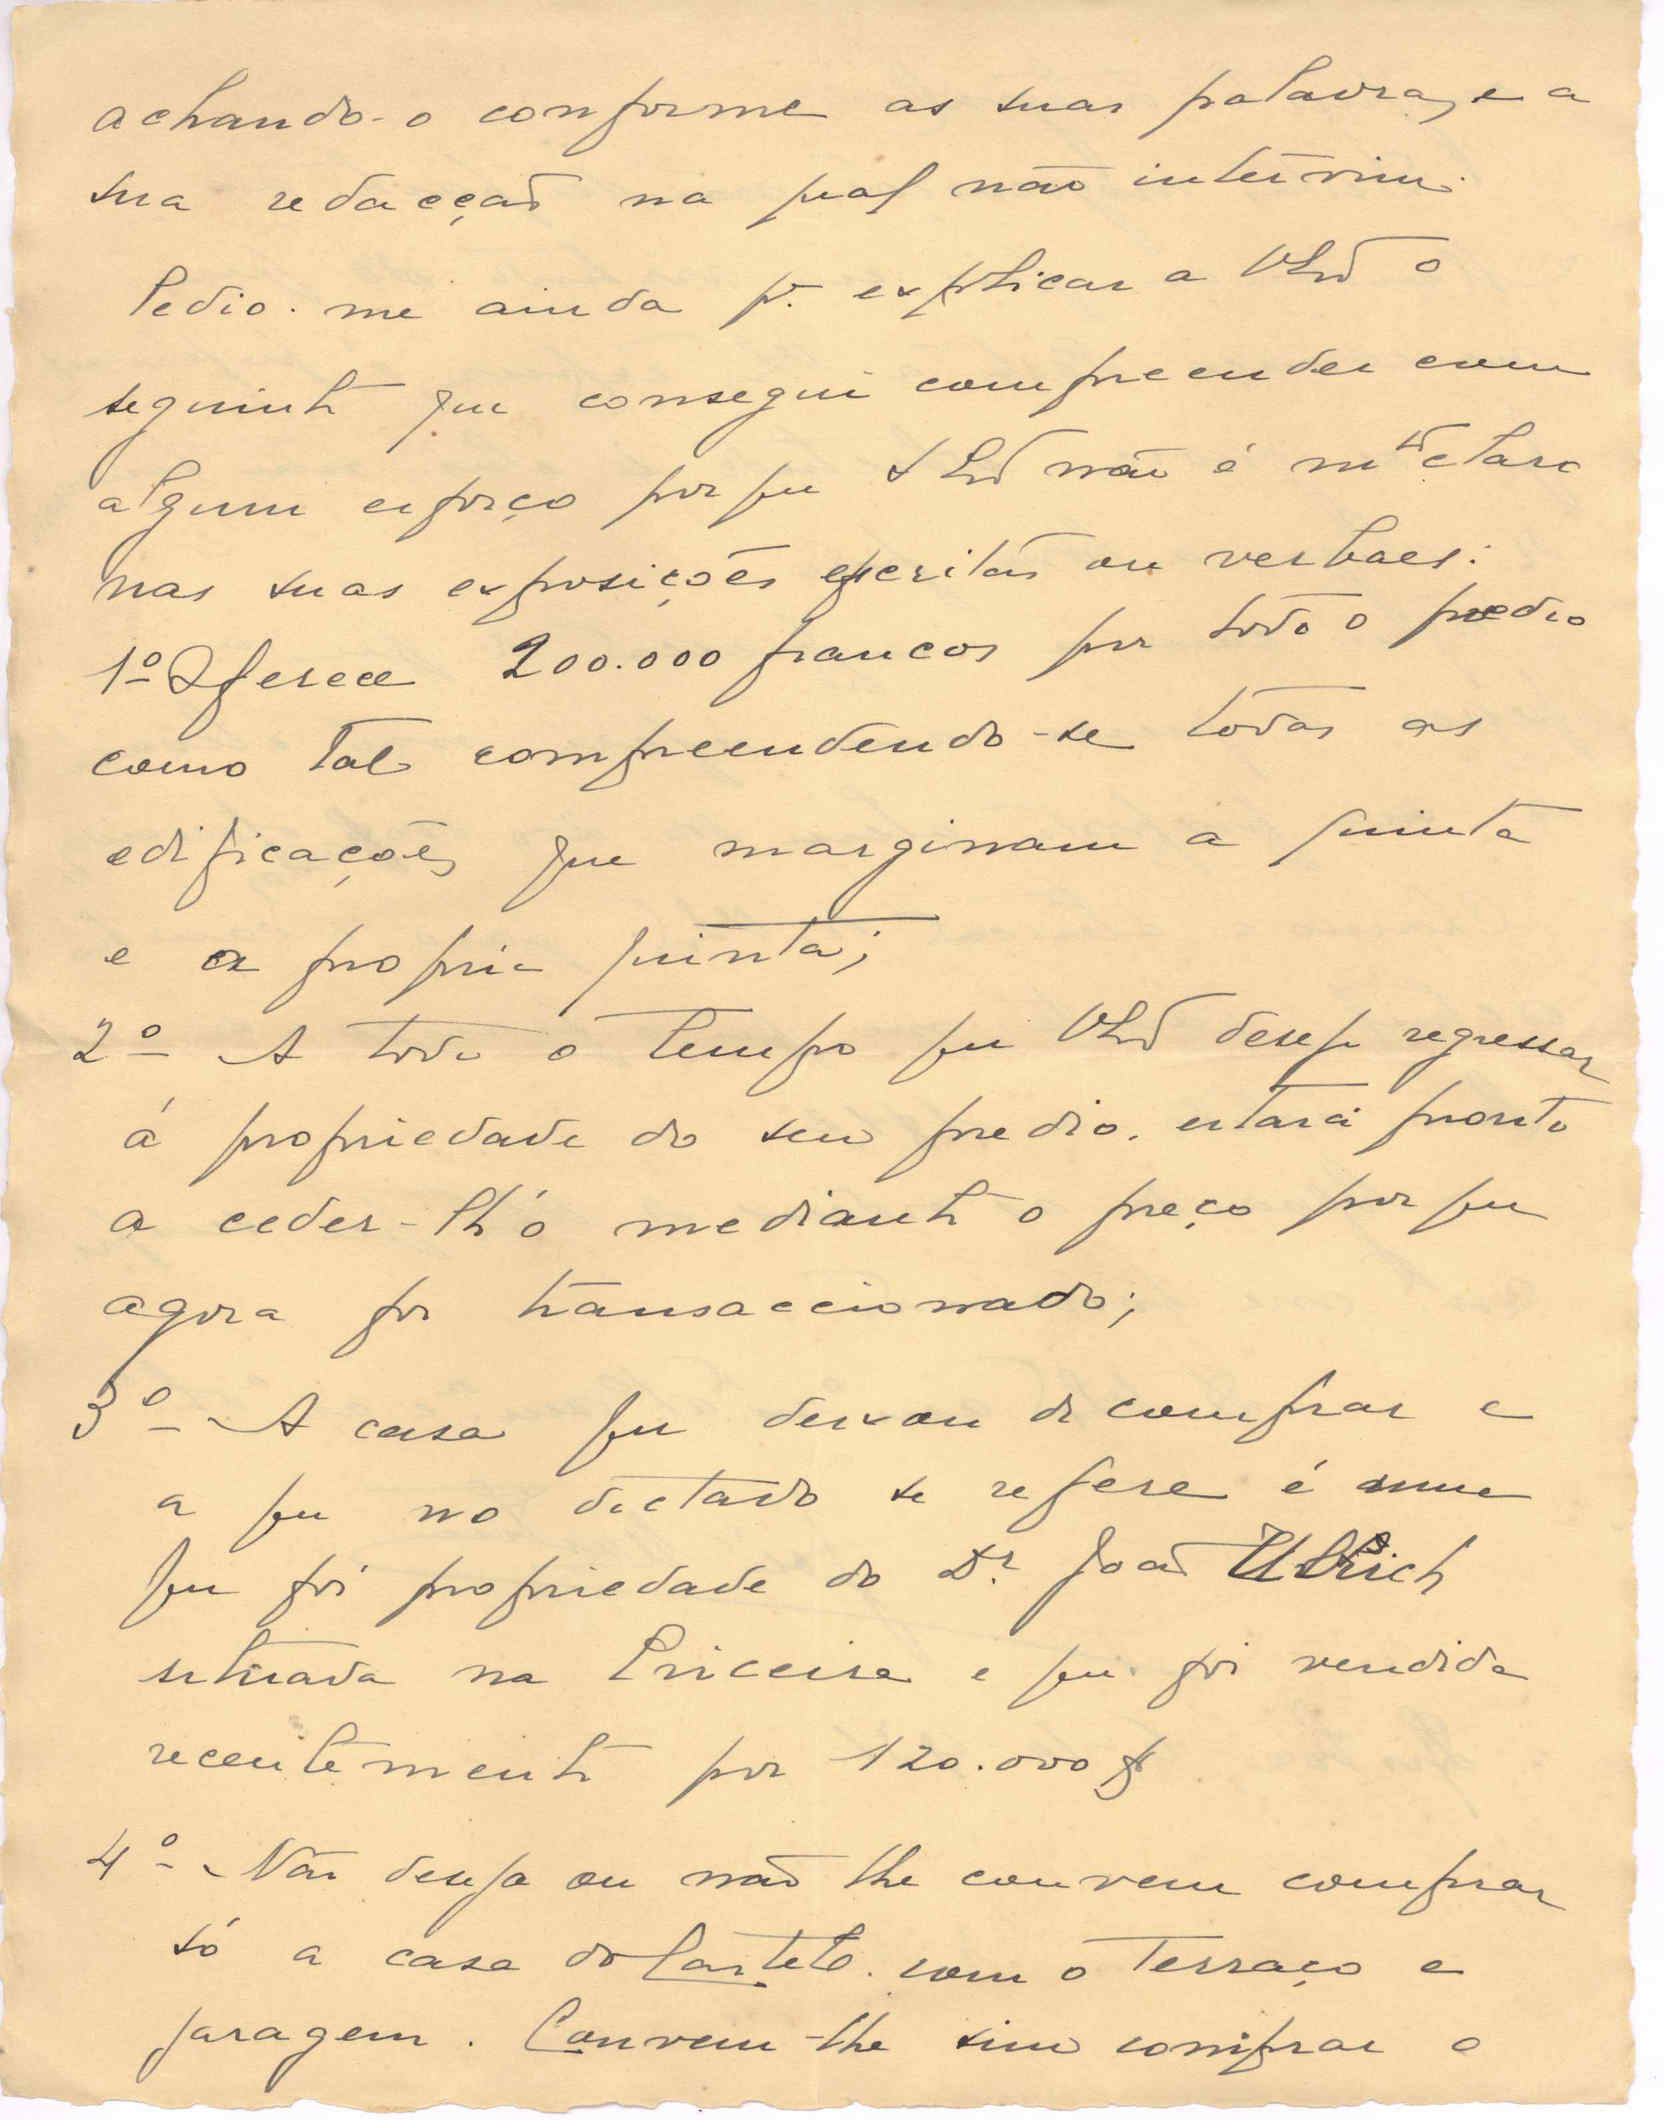 achando-o conforme as suas palavras, e a
sua redacção na qual não intervim.
Pedio-me ainda pª explicar a VExª o
seguinte que consegui compreender com
algum esforço por que VExª não é mtº claro
nas suas exposições escritas ou verbaes:
1º Oferece 200.000 francos por todo o predio
como tal compreendendo-se todas as
edificações que marginam a quinta
e a propria quinta;
2º A todo o tempo que VExª deseje regressar
á propriedade do seu predio, estará pronto
a ceder-lh'o mediante o preço por que
agora for transaccionado;
3º A casa que deixou de comprar e
a que no dictado se refere é uma
que foi propriedade do Dr. João Ulrich
situada na Ericeira e que foi vendida
recentemente por 120.000$
4º Não deseja ou não lhe convem comprar
só a casa do Castelo com o terraço e
garagem. Convem-lhe sim comprar o